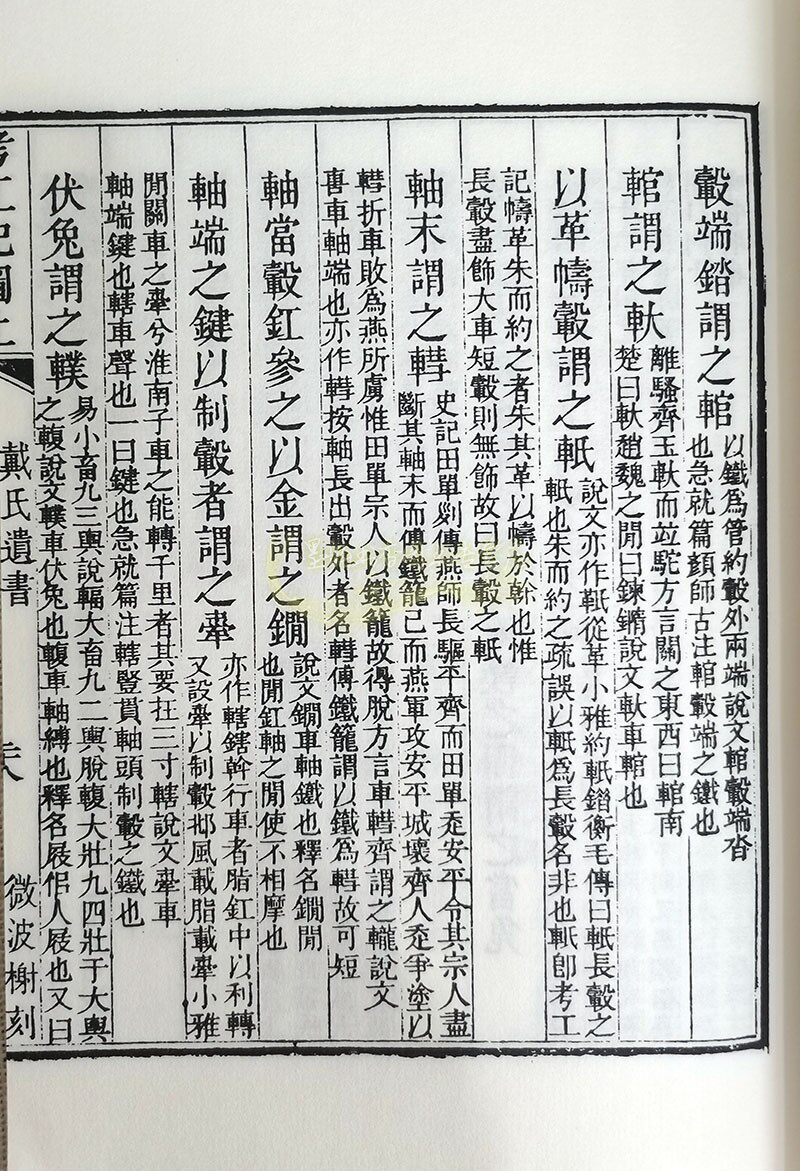 轂端錔謂之輨以鐵爲管約轂外兩端說文輨轂端沓
也急就篇顏師古注輨轂端之鐵也
輨謂之軑離騷齊玉軑而竝駝方言關之東西曰輨南
楚曰軑趙魏之閒曰鍊鐫說文軑車輨也
以革幬轂謂之軝說文亦作𨊻從革小雅約軝錯衡毛傳曰軝長轂之
軝也朱而約之疏誤以軝爲長轂名非也軝卽考工
記幬革朱而約之者朱其革以幬於幹也惟
長轂盡飾大車短轂則無飾故曰長轂之軝
軸末謂之轊史記田單剡傳燕師長驅平齊而田單走安平令其宗人盡
斷其軸末而傅鐵籠已而燕軍攻安平城壞齊人走爭塗以
轊折車敗爲燕所虜惟田單宗人以鐵籠故得脫方言車轊齊謂之䡵說文
軎車軸端也亦作轊按軸長出轂外者名轊傅鐵籠謂以鐵爲轊故可短
軸當轂釭參之以金謂之鐧說文鐧車軸鐵也釋名鐧閒
也閒釭軸之閒使不相摩也
軸端之鍵以制轂者謂之舝亦作轄鎋幹行車者脂釭中以利轉
又設舝以制轂邶風載脂載舝小雅
閒關車之舝兮淮南子車之能轉千里者其要在三寸轄說文舝車
軸端鍵也轄車聲也一曰鍵也急就篇注轄豎貫軸頭制轂之鐵也
伏兔謂之轐易小畜九三輿說輻大畜九二輿脫輹大壯九四壯于大輿
之輹說文轐車伏兔也輹車軸縛也釋名屐佀人屐也又曰
考工記圖上
戴氏遺書
微波榭刻